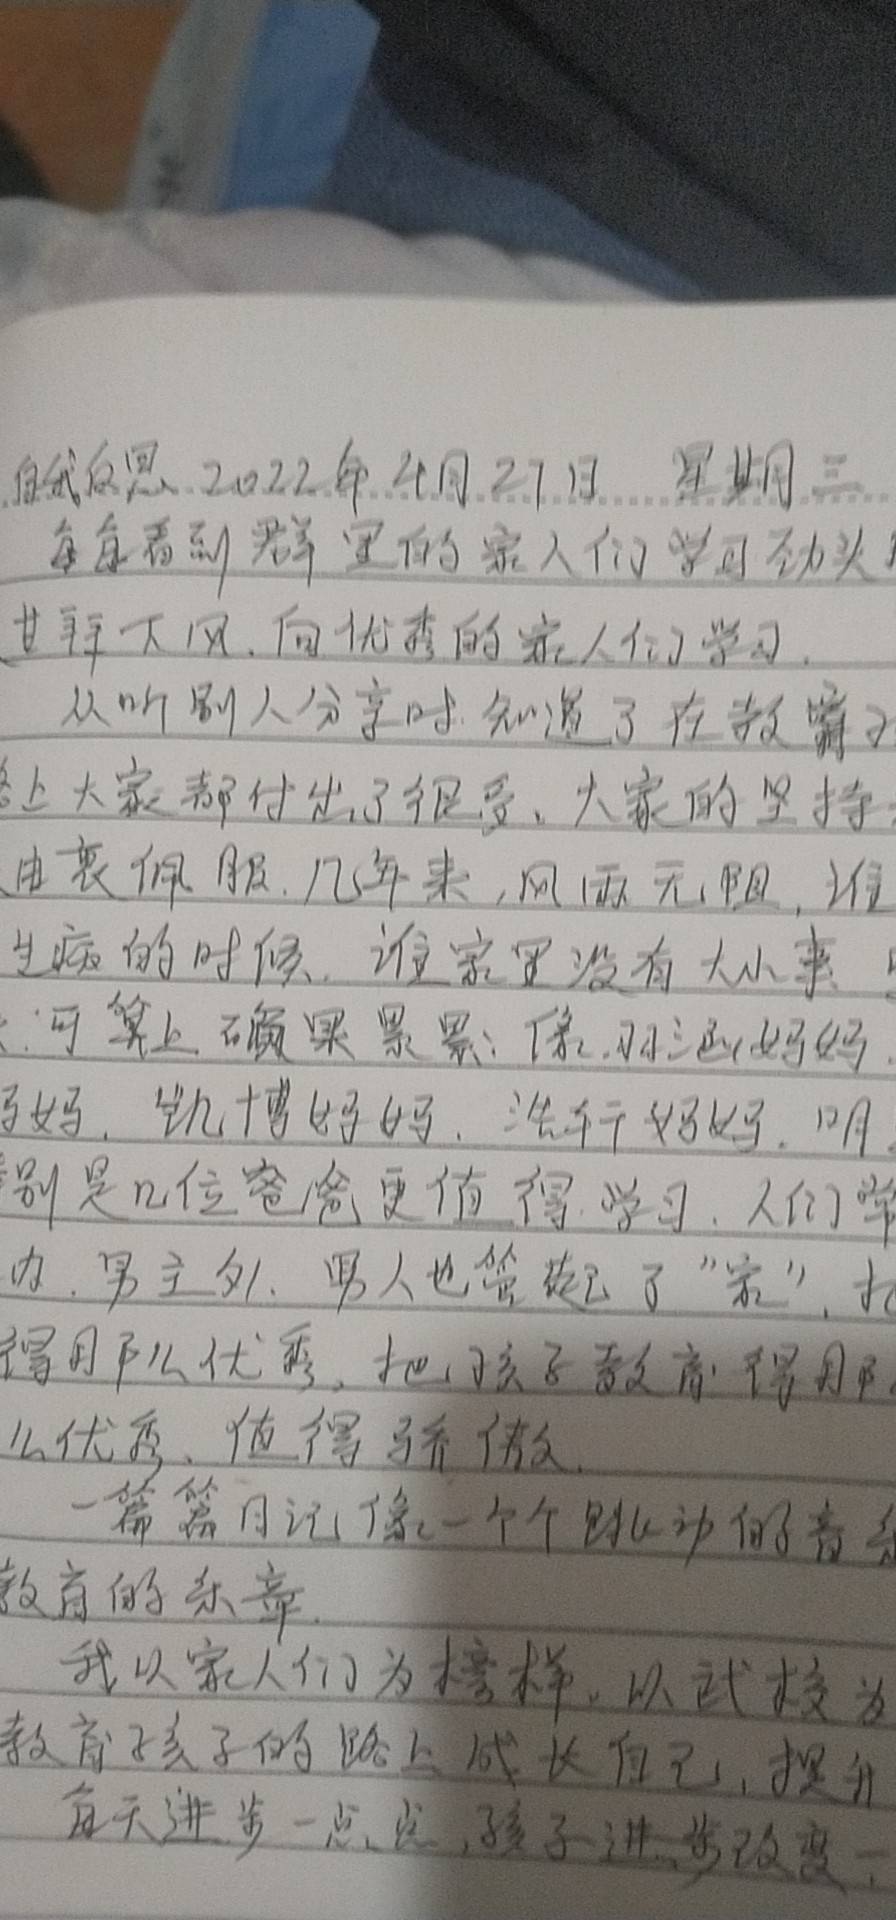 自我反思 2022年4月27日 星期三
每每看到群里的家人们学习劲头
甘拜下风.向优秀的家人们学习.
从听别人分享时.知道了在教育
路上大家都付出了很多、大家的坚持
由衷佩服.几年来,风雨无阻,谁
生病的时候.谁家里没有大小事
可算上硕果累累:像.羽涵妈妈.
妈妈.凯博妈妈.浩轩妈妈.明
别是几位爸爸更值得.学习.人们常
内.男主外.男人也管起了“家”.把
得那么优秀.把孩子教育得那
么优秀、值得骄傲.
一篇篇日记像一个个跳动的音
教育的乐章.
我以家人们为榜样。以武校为
教育孩子的路上成长自己,提升
每天进步一点点,孩子进步改变一